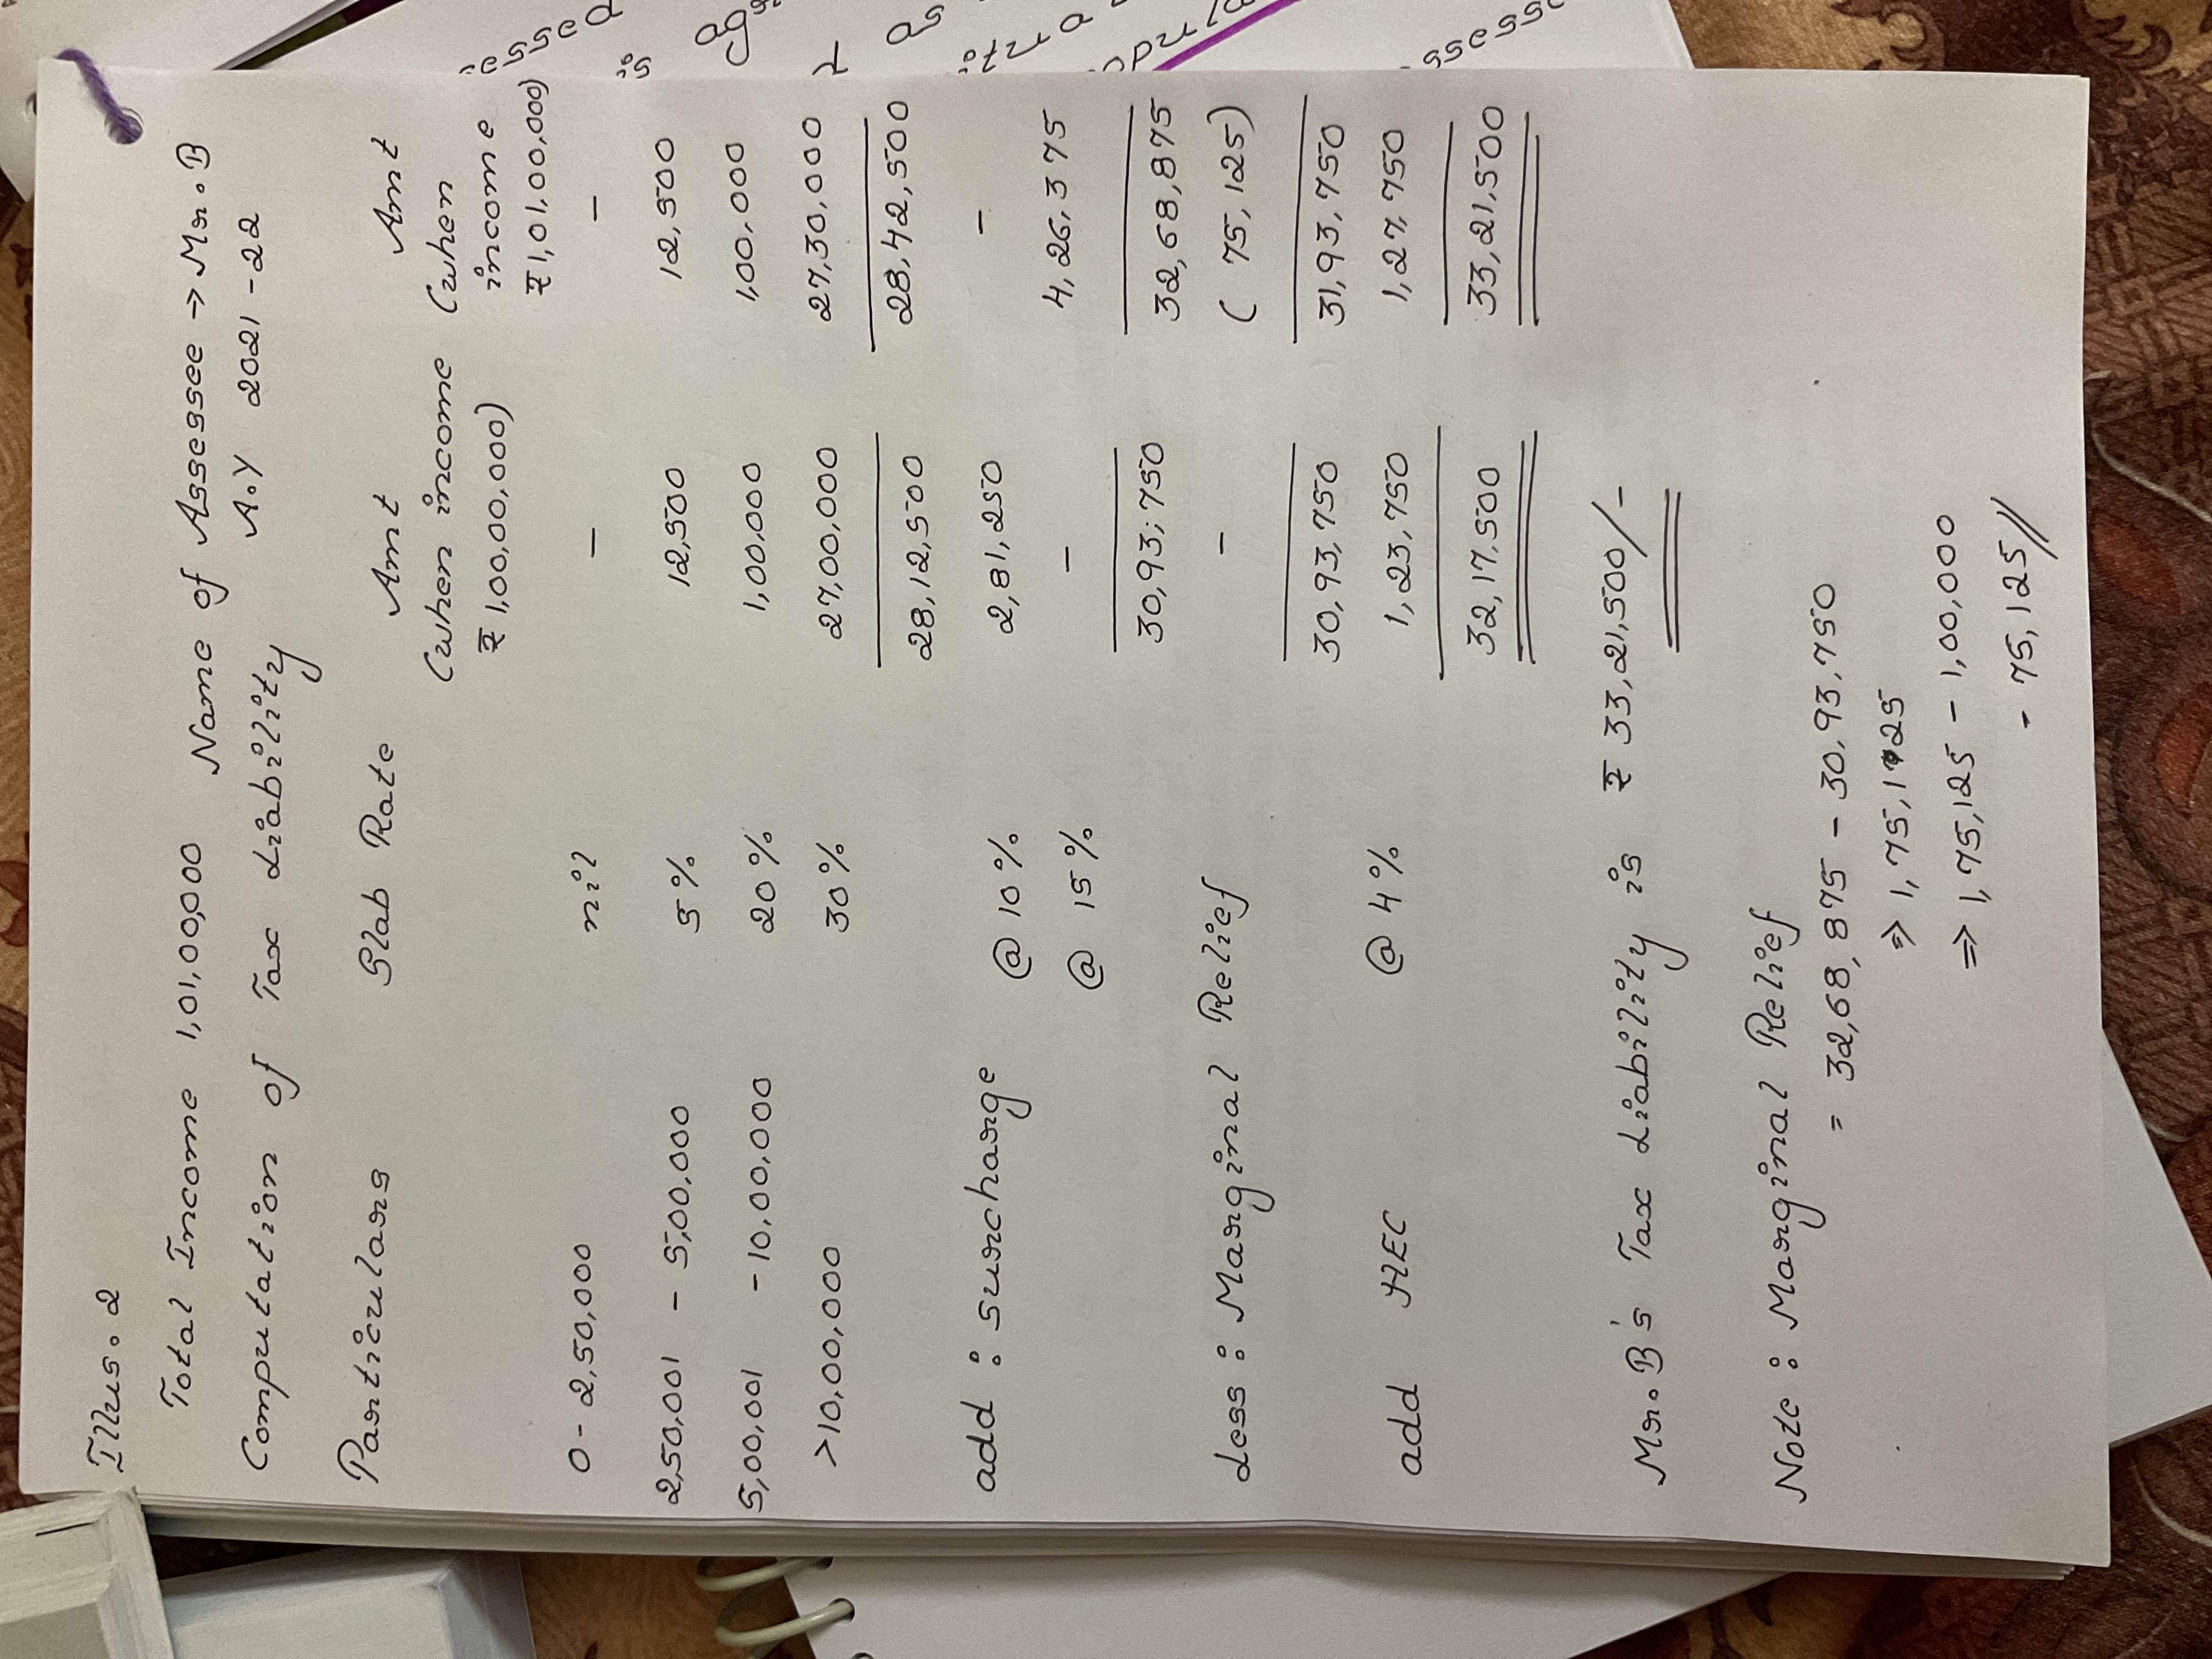 Illus. 2
Total Income 1,01,00,000 Name of Assessee → Mr. B
Computation of Tax Liability A.Y 2021-22
Particulars Slab Rate Amt Amt
(when income (when
₹ 1,00,00,000) income
₹ 1,01,00,000)
0 - 2,50,000 nil - -
2,50,001 - 5,00,000 5% 12,500 12,500
5,00,001 - 10,00,000 20% 1,00,000 1,00,000
>10,00,000 30% 27,00,000 27,30,000
28,12,500 28,42,500
add : surcharge @ 10% 2,81,250 -
@ 15% - 4,26,375
30,93,750 32,68,875
Less : Marginal Relief - ( 75,125)
30,93,750 31,93,750
add HEC @ 4% 1,23,750 1,27,750
32,17,500 33,21,500
Mr. B's Tax Liability is ₹ 33,21,500/-
Note : Marginal Relief
= 32,68,875 - 30,93,750
⇒ 1,75,125
⇒ 1,75,125 - 1,00,000
- 75,125//